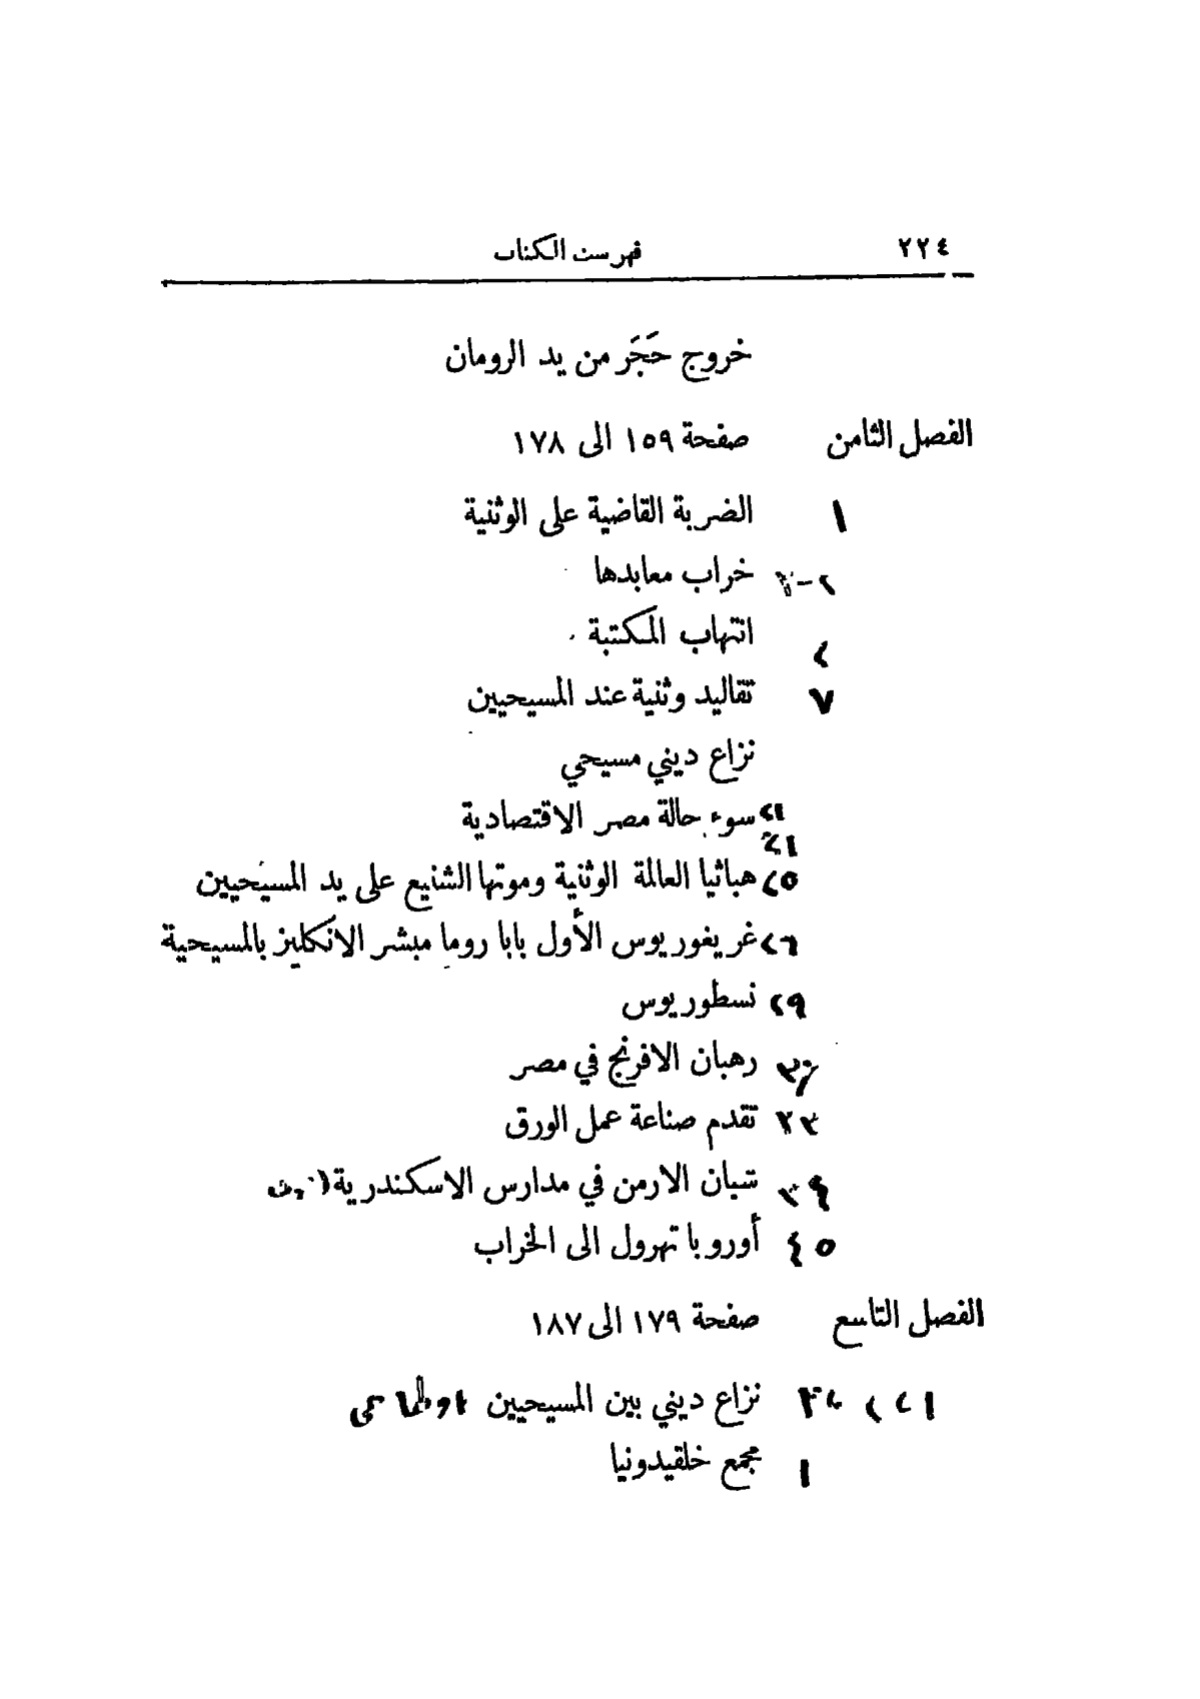 ٢٢٤ فهرست الكتاب
خروج حَجَر من يد الرومان
الفصل الثامن صفحة ١٥٩ الى ١٧٨
١ الضربة القاضية على الوثنية
خراب معابدها
انتهاب المكتبة
٧ تقاليد وثنية عند المسيحيين
نزاع ديني مسيحي
سوء حالة مصر الاقتصادية
٢٥ هباثيا العالمة الوثنية وموتها الشنيع على يد المسيحيين
٢٦ غريغوريوس الأول بابا روما مبشر الانكليز بالمسيحية
٢٩ نسطوريوس
رهبان الافرنج في مصر
تقدم صناعة عمل الورق
شبان الارمن في مدارس الاسكندرية
٤٥ أوروبا تهرول الى الخراب
الفصل التاسع صفحة ١٧٩ الى ١٨٧
نزاع ديني بين المسيحيين
١ مجمع خلقيدونيا